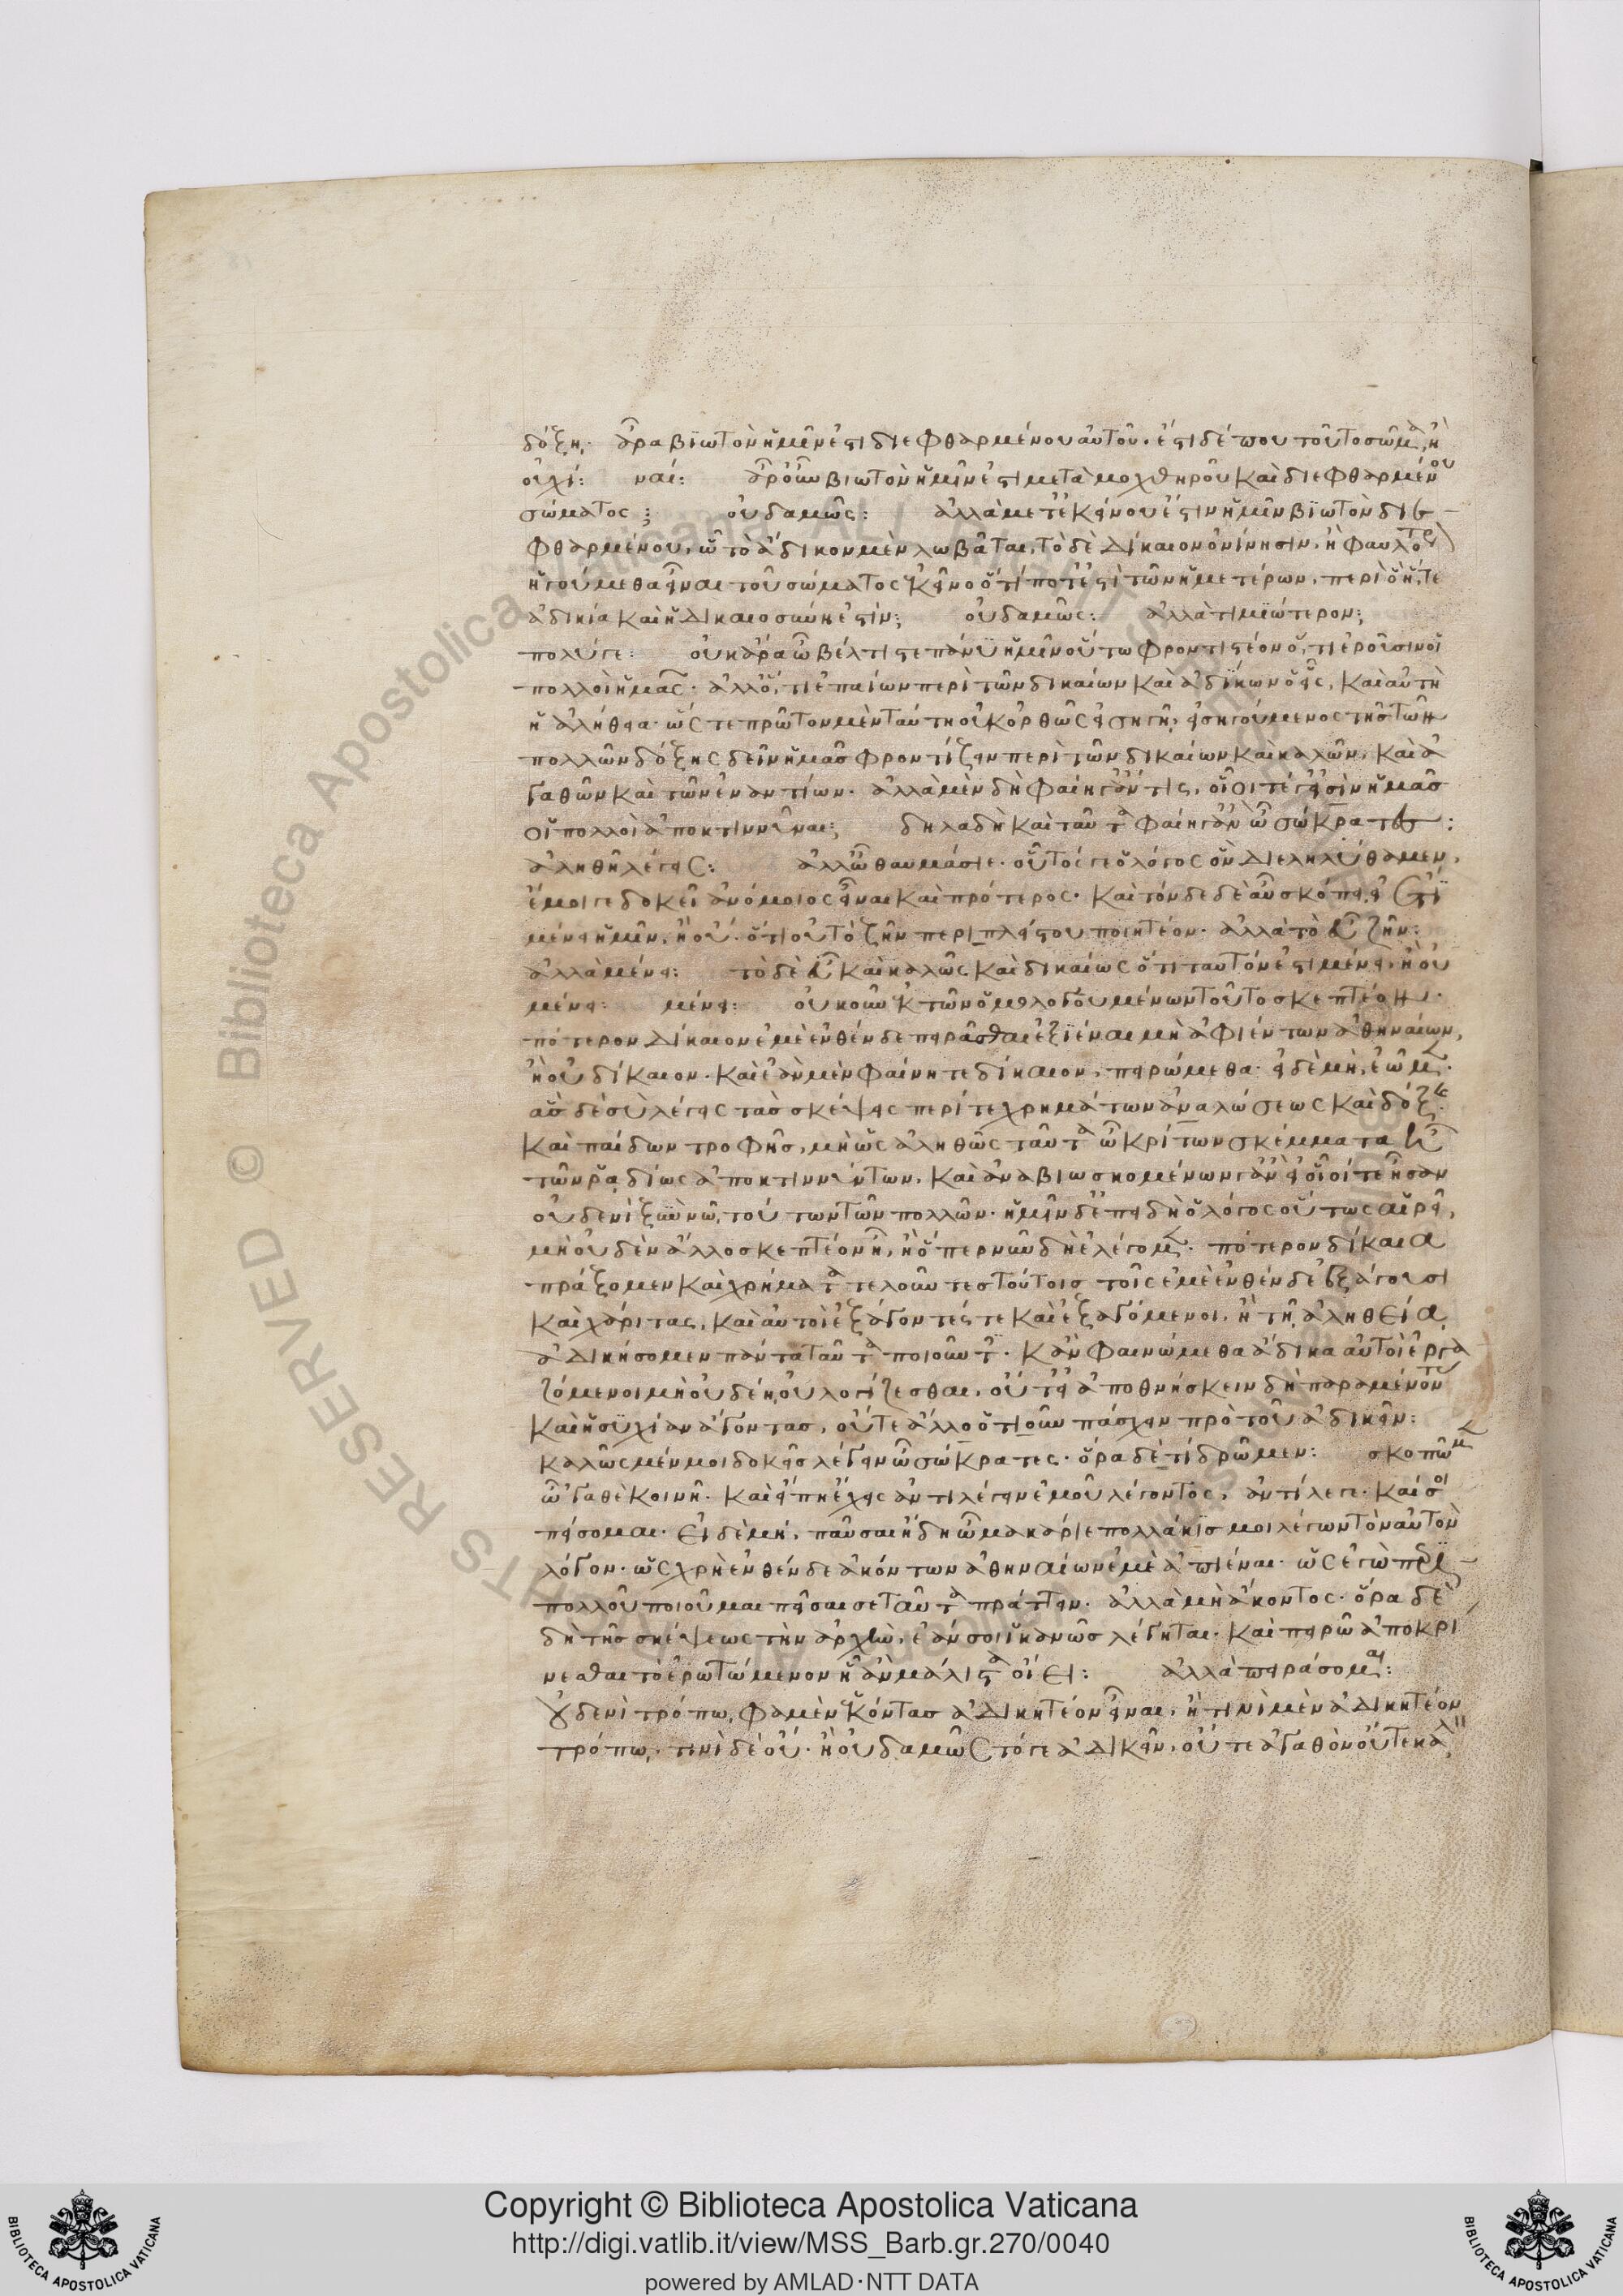 δόξη· ἆρα βϊωτὸν ἡμῖν ἐστι διεφθαρμένου αὐτοῦ. ἔστι δέ που τοῦτο σῶμα, ἢ
οὐχί: ναί: ἆρ' οὖν βιωτὸν ἡμῖν ἐστι μετὰ μοχθηροῦ καὶ διεφθαρμένου
σώματος; οὐδαμῶς: ἀλλὰ μετ' ἐκείνου ἔστιν ἡμῖν βϊωτὸν διε
φθαρμένου, ὧ τὸ ἄδικον μὲν λωβᾶται, τὸ δὲ δίκαιον ὀνίνησιν, ἢ φαυλότερον
ἡγούμεθα εἶναι τοῦ σώματος ἐκεῖνο ὅ τί ποτ' ἐστὶ τῶν ἡμετέρων, περὶ ὃ ἥ, τε
ἀδικία καὶ ἡ δικαιοσύνη ἐστίν; οὐδαμῶς: ἀλλὰ τιμϊώτερον;
πολύ γε: οὐκ ἄρα ὦ βέλτιστε πάνυ ἡμῖν οὕτω φροντιστέον ὅ, τι ἐροῦσιν οἱ
πολλοὶ ἡμᾶς· ἀλλ' ὅ, τι ἐπαΐων περὶ τῶν δικαίων καὶ ἀδίκων ὁ εἷς, καὶ αὐτὴ
ἡ ἀλήθεια· ὥστε πρῶτον μὲν ταύτη οὐκ ὀρθῶς εἰσηγῆ, εἰσηγούμενος τῆς τῶν
πολλῶν δόξης δεῖν ἡμᾶς φροντίζειν περὶ τῶν δικαίων καὶ καλῶν, καὶ ἀ
γαθῶν καὶ τῶν ἐναντίων. ἀλλὰ μὲν δὴ φαίη γ' ἄν τις, οἷοί τέ γ' εἰσὶν ἡμᾶς
οἱ πολλοὶ ἀποκτιννῦναι; δηλαδὴ καὶ ταῦτα φαίη γὰρ ἂν ὦ σώκρατες:
ἀληθῆ λέγεις: ἀλλ' ὦ θαυμάσιε. οὗτός γε ὁ λόγος ὃν διεληλύθαμεν,
ἔμοιγε δοκεῖ ἀνόμοιος εἶναι καὶ πρότερος. καὶ τόνδε δὲ αὖ σκόπει, εἰ ἔτϊ
μένει ἡμῖν, ἢ οὔ. ὅτι οὐ τὸ ζῆν περὶ πλείστου ποιητέον. ἀλλὰ τὸ εὖ ζῆν:
ἀλλὰ μένει: τὸ δὲ εὖ καὶ καλῶς καὶ δικαίως ὅτι ταυτόν ἐστι μένει, ἢ οὐ
μένει: μένει: οὐκοῦν ἐκ τῶν ὁμολογουμένων τοῦτο σκεπτέον.
πότερον δίκαιον ἐμὲ ἐνθένδε πειρᾶσθαι ἐξϊέναι μὴ ἀφιέντων ἀθηναίων,
ἢ οὐ δίκαιον. καὶ ἐὰν μὲν φαίνηται δίκαιον, πειρώμεθα· εἰ δὲ μὴ, ἐῶμεν.
ἃς δὲ σὺ λέγεις τὰς σκέψεις περί τε χρημάτων ἀναλώσεως καὶ δόξης
καὶ παίδων τροφῆς, μὴ ὡς ἀληθῶς ταῦτα ὦ κρίτων σκέμματα ἦ
τῶν ῥαδίως ἀποκτιννύντων, καὶ ἀναβιωσκομένων γ' ἂν εἰ οἷοί τε ἦσαν
οὐδενὶ ξὺν νῶ, τούτων τῶν πολλῶν. ἡμῖν δ' ἐπειδὴ ὁ λόγος οὕτως αἱρεῖ,
μὴ οὐδὲν ἄλλο σκεπτέον ἦ, ἢ ὅπερ νῦν δὴ ἐλέγομεν. πότερον δίκαια
πράξομεν καὶ χρήματα τελοῦντες τούτοις τοῖς ἐμὲ ἐνθένδε ἐξάγουσι
καὶ χάριτας, καὶ αὐτοὶ ἐξάγοντές τε καὶ ἐξαγόμενοι, ἢ τῆ ἀληθεία
ἀδικήσομεν πάντα ταῦτα ποιοῦντες. κἂν φαινώμεθα ἄδικα αὐτοὶ ἐργα
ζόμενοι μὴ οὐ δέη οὐ λογίζεσθαι, οὔτ' εἰ ἀποθνήσκειν δὴ παραμένοντας
καὶ ἡσϋχίαν ἄγοντας, οὔτε ἄλλο ὁτιοῦν πάσχειν πρὸ τοῦ ἀδικεῖν:
καλῶς μέν μοι δοκεῖς λέγειν ὦ σώκρατες. ὅρα δὲ τί δρῶμεν: σκοπῶμεν
ὦ 'γαθὲ κοινῆ. καὶ εἴ πη ἔχεις ἀντιλέγειν ἐμοῦ λέγοντος, ἀντίλεγε. καί σοι
πείσομαι. εἰ δὲ μή, παῦσαι ἤδη ὦ μακάριε πολλάκϊς μοι λέγων τὸν αὐτὸν
λόγον. ὡς χρὴ ἐνθένδε ἀκόντων ἀθηναίων ἐμὲ ἀπϊέναι. ὡς ἐγὼ περὶ
πολλοῦ ποιοῦμαι πεῖσαί σε ταῦτα πράττειν. ἀλλὰ μὴ ἄκοντος. ὅρα δὲ
δὴ τῆς σκέψεως τὴν ἀρχὴν, ἐάν σοι ἱκανῶς λέγηται. καὶ πειρῶ ἀποκρί
νεσθαι τὸ ἐρωτώμενον ἧ ἂν μάλιστα οἴει: ἀλλὰ πειράσομαι:
οὐδενὶ τρόπω, φαμὲν ἑκόντας ἀδικητέον εἶναι, ἢ τινὶ μὲν ἀδικητέον
τρόπω, τινὶ δὲ οὔ. ἢ οὐδαμῶς τό γε ἀδικεῖν, οὔτε ἀγαθὸν οὔτε καλὸν